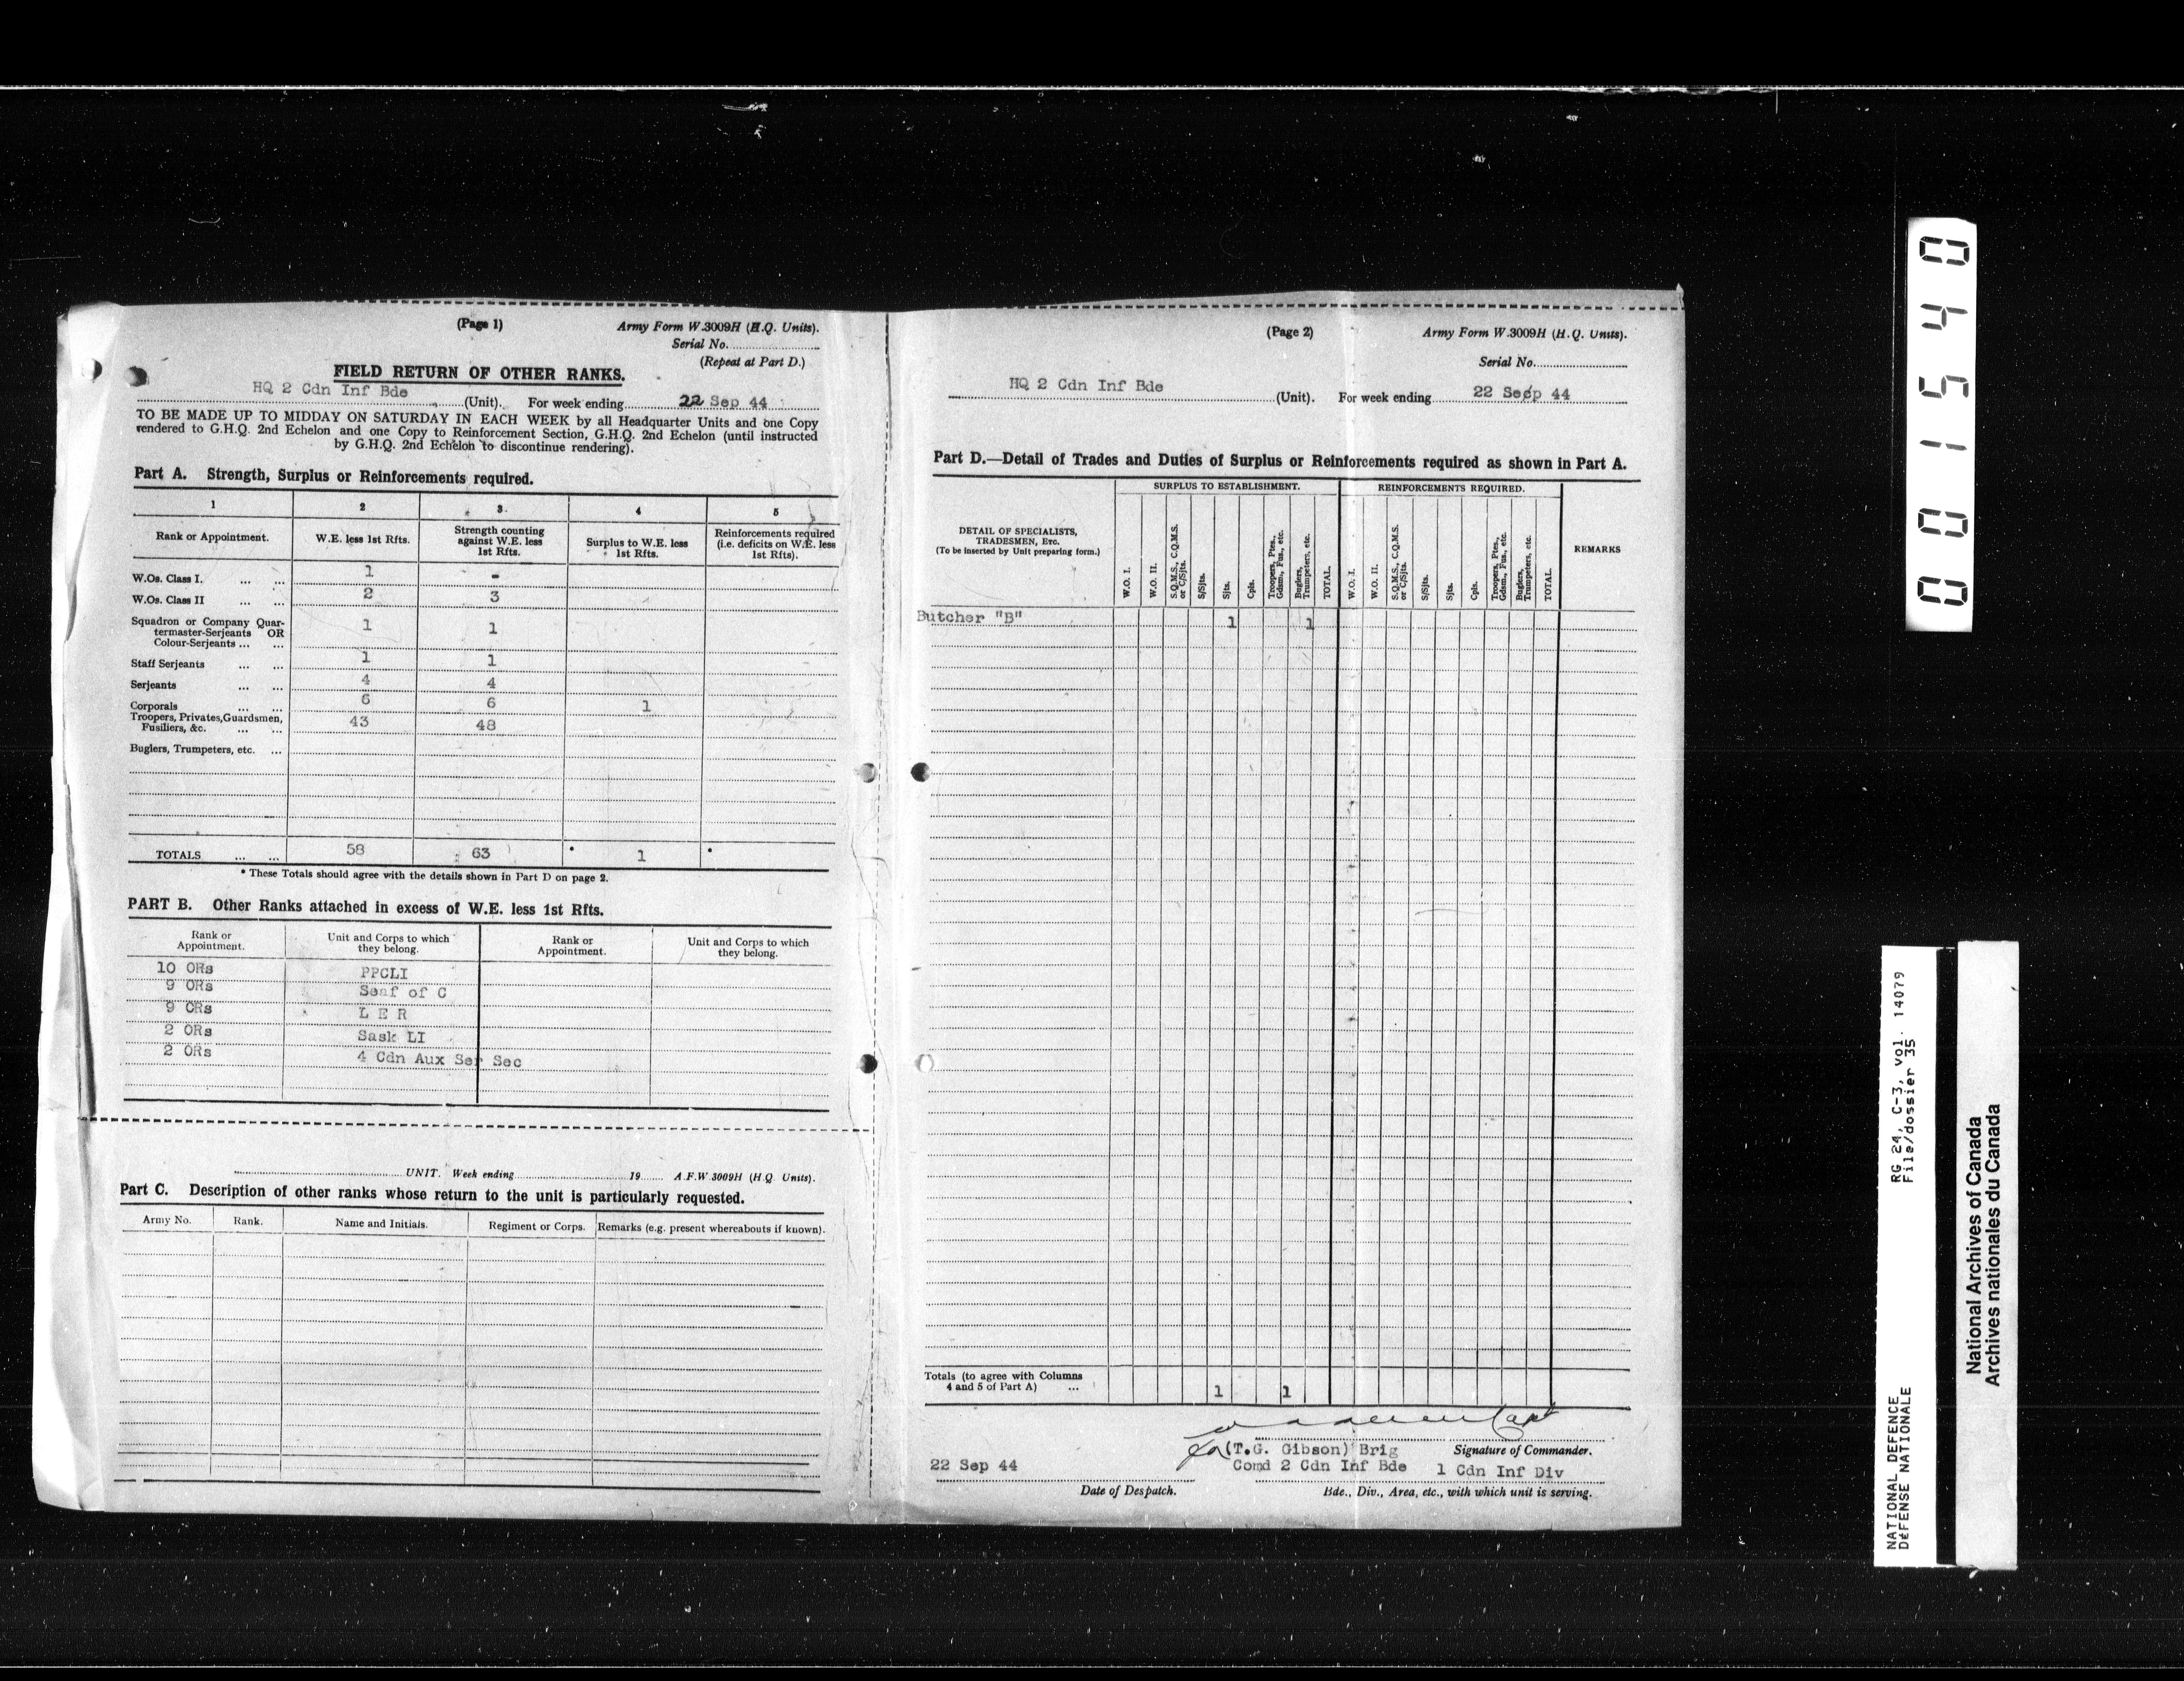 (Page 1)
Army Form W.3009H (H.Q. Units).
Serial No.
(Repeat at Part D.)
FIELD RETURN OF OTHER RANKS.
HQ 2 Cdn Inf Bde (Unit). For week ending 22 Sep 44
TO BE MADE UP TO MIDDAY ON SATURDAY IN EACH WEEK by all Headquarter Units and one Copy
rendered to G.H.Q. 2nd Echelon and one Copy to Reinforcement Section, G.H.Q. 2nd Echelon (until instructed
by G.H.Q. 2nd Echelon to discontinue rendering).
Part A. Strength, Surplus or Reinforcements required.
1 2 3. 4 5
Rank or Appointment. W.E. less 1st Rfts. Strength counting against W.E. less 1st Rfts. Surplus to W.E. less 1st Rfts. Reinforcements required (i.e. deficits on W.E. less 1st Rfts).
W.Os. Class I. ... ... 1 -
W.Os. Class II ... ... 2 3
Squadron or Company Quar-
termaster-Serjeants OR 1 1
Colour-Serjeants ... ...
Staff Serjeants ... ... 1 1
Serjeants ... ... 4 4
Corporals ... ... 6 6 1
Troopers, Privates, Guardsmen,
Fusiliers, &c. ... ... 43 48
Buglers, Trumpeters, etc. ...
TOTALS ... ... 58 63 * 1 *
* These Totals should agree with the details shown in Part D on page 2.
PART B. Other Ranks attached in excess of W.E. less 1st Rfts.
Rank or Appointment. Unit and Corps to which they belong. Rank or Appointment. Unit and Corps to which they belong.
10 ORs PPCLI
9 ORs Seaf of C
9 ORs L E R
2 ORs Sask LI
2 ORs 4 Cdn Aux Ser Sec
UNIT. Week ending 19 A.F.W 3009H (H.Q. Units).
Part C. Description of other ranks whose return to the unit is particularly requested.
Army No. Rank. Name and Initials. Regiment or Corps. Remarks (e.g. present whereabouts if known).
(Page 2)
Army Form W.3009H (H.Q. Units).
Serial No.
HQ 2 Cdn Inf Bde (Unit). For week ending 22 Sep 44
Part D.—Detail of Trades and Duties of Surplus or Reinforcements required as shown in Part A.
SURPLUS TO ESTABLISHMENT. REINFORCEMENTS REQUIRED.
DETAIL OF SPECIALISTS,
TRADESMEN, Etc.
(To be inserted by Unit preparing form.)
W.O. I. W.O. II. S.Q.M.S., C.Q.M.S. or C/Sjts. S/Sjts. Sjts. Cpls. Troopers, Ptes., Gdsm., Fus., etc. Buglers, Trumpeters, etc. TOTAL.
W.O. I. W.O. II. S.Q.M.S., C.Q.M.S. or C/Sjts. S/Sjts. Sjts. Cpls. Troopers, Ptes., Gdsm., Fus., etc. Buglers, Trumpeters, etc. TOTAL.
REMARKS
Butcher "B" 1 1
Totals (to agree with Columns
4 and 5 of Part A) ... 1 1
Capt
for (T.G. Gibson) Brig Signature of Commander.
22 Sep 44 Comd 2 Cdn Inf Bde 1 Cdn Inf Div
Date of Despatch. Bde., Div., Area, etc., with which unit is serving.
001540
RG 24, C-3, vol. 14079
File/dossier 35
NATIONAL DEFENCE
DÉFENSE NATIONALE
National Archives of Canada
Archives nationales du Canada